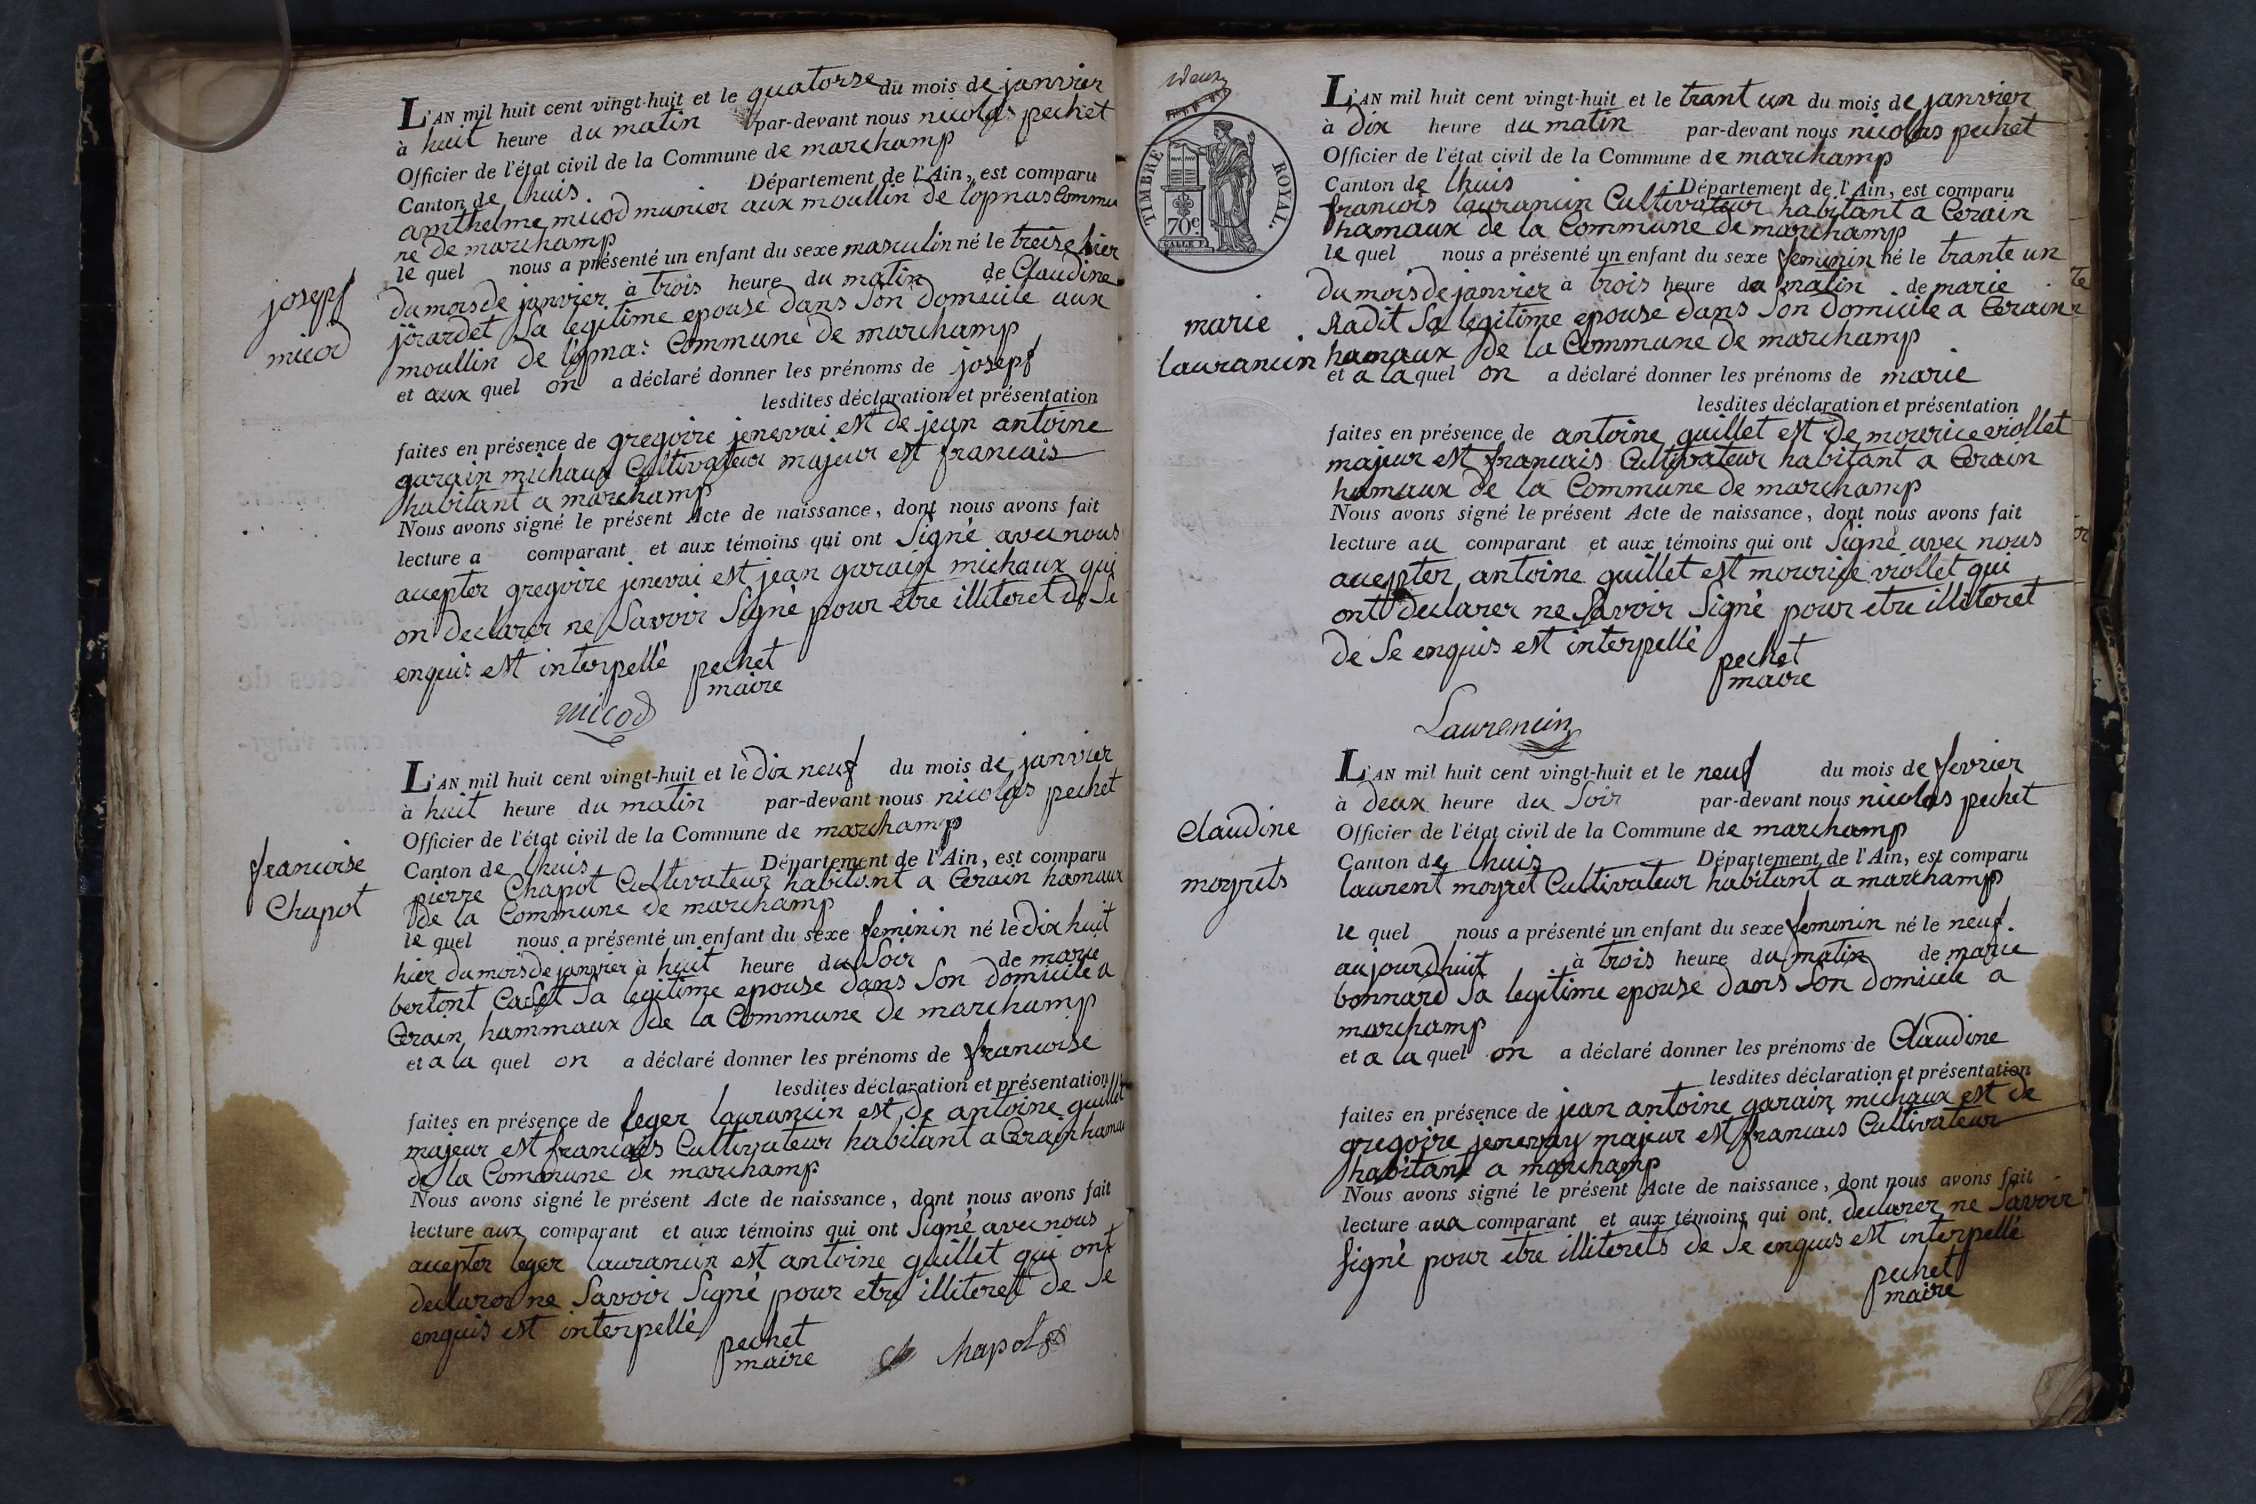 L'AN mil huit cent vingt-huit et le quatorze du mois de janvier
à huit heure du matin par-devant nous nicolas pechet
Officier de l'état civil de la Commune de marchamp
Canton de lhuis. Département de l'Ain, est comparu
amthelme micod munier aux moullin de lopnas Commu
ne de marchamp
le quel nous a présenté un enfant du sexe masculin né le treise hier
du mois de janvier à trois heure du matin de Claudine
jörardet Sa legitime epouse dans Son domicile aux
moullin de l'opna: Commune de marchamp
et aux quel on a déclaré donner les prénoms de josepf
lesdites déclaration et présentation
faites en présence de gregoire jenevai est de jean antoine
garain michaux Cultivateur majeur est francais
habitant a marchamp
Nous avons signé le présent Acte de naissance, dont nous avons fait
lecture a comparant et aux témoins qui ont Signé avec nous
accepter gregoire jenevai est jean garain michaux qui
on declarer ne Savoir Signé pour etre illiteret de Se
enquis est interpellé pechet
maire
micod
josepf
micod
L'AN mil huit cent vingt-huit et le dix neuf du mois de janvier
à huit heure du matin par-devant nous nicolas pechet
Officier de l'état civil de la Commune de marchamp
Canton de lhuis Département de l'Ain, est comparu
pierre Chapot Cultivateur habitant a Cerain hamaux
de la Commune de marchamp
le quel nous a présenté un enfant du sexe feminin né le dix huit
hier du mois de janvier à huit heure du Soir de marie
bertont Cadet Sa legitime epouse dans Son domicile a
Cerain hammaux de la Commune de marchamp
et a la quel on a déclaré donner les prénoms de francoise
lesdites déclaration et présentation
faites en présence de leger laurancin est de antoine guillet
majeur est francais Cultivateur habitant a Cerain hamau
de la Commune de marchamp
Nous avons signé le présent Acte de naissance, dont nous avons fait
lecture aux comparant et aux témoins qui ont Signé avec nous
accepter leger laurancin est antoine guillet qui ont
declarer ne Savoir Signé pour etre illiteret de Se
enquis est interpellé pechet
maire Chapot
francoise
Chapot
deux
TIMBRE ROYAL.
70c
L'AN mil huit cent vingt-huit et le trant un du mois de janvier
à dix heure du matin par-devant nous nicolas pechet
Officier de l'état civil de la Commune de marchamp
Canton de lhuis Département de l'Ain, est comparu
francois laurancin Cultivateur habitant a Cerain
hamaux de la Commune de marchamp
le quel nous a présenté un enfant du sexe feminin né le trante un
du mois de janvier à trois heure du matin de marie
Radit Sa legitime epouse dans Son domicile a Cerain
hamaux de la Commune de marchamp
et a la quel on a déclaré donner les prénoms de marie
lesdites déclaration et présentation
faites en présence de antoine guillet est de mourice viollet
majeur est francais Cultivateur habitant a Cerain
hamaux de la Commune de marchamp
Nous avons signé le présent Acte de naissance, dont nous avons fait
lecture au comparant et aux témoins qui ont Signé avec nous
accepter antoine guillet est mourice viollet qui
ont declarer ne Savoir Signé pour etre illiteret
de Se enquis est interpellé pechet
maire
Laurencin
marie
laurancin
L'AN mil huit cent vingt-huit et le neuf du mois de fevrier
à deux heure du Soir par-devant nous nicolas pechet
Officier de l'état civil de la Commune de marchamp
Canton de lhuis Département de l'Ain, est comparu
laurent moyret Cultivateur habitant a marchamp
le quel nous a présenté un enfant du sexe feminin né le neuf.
aujourdhuit à trois heure du matin de marie
bonnard Sa legitime epouse dans Son domicile a
marchamp
et a la quel on a déclaré donner les prénoms de Claudine
lesdites déclaration et présentation
faites en présence de jean antoine garain michaux est de
gregoire jenevay majeur est francais Cultivateur
habitant a marchamp
Nous avons signé le présent Acte de naissance, dont nous avons fait
lecture aux comparant et aux témoins qui ont declarer ne Savoir
Signé pour etre illiterets de Se enquis est interpellé
pechet
maire
Claudine
moyrets